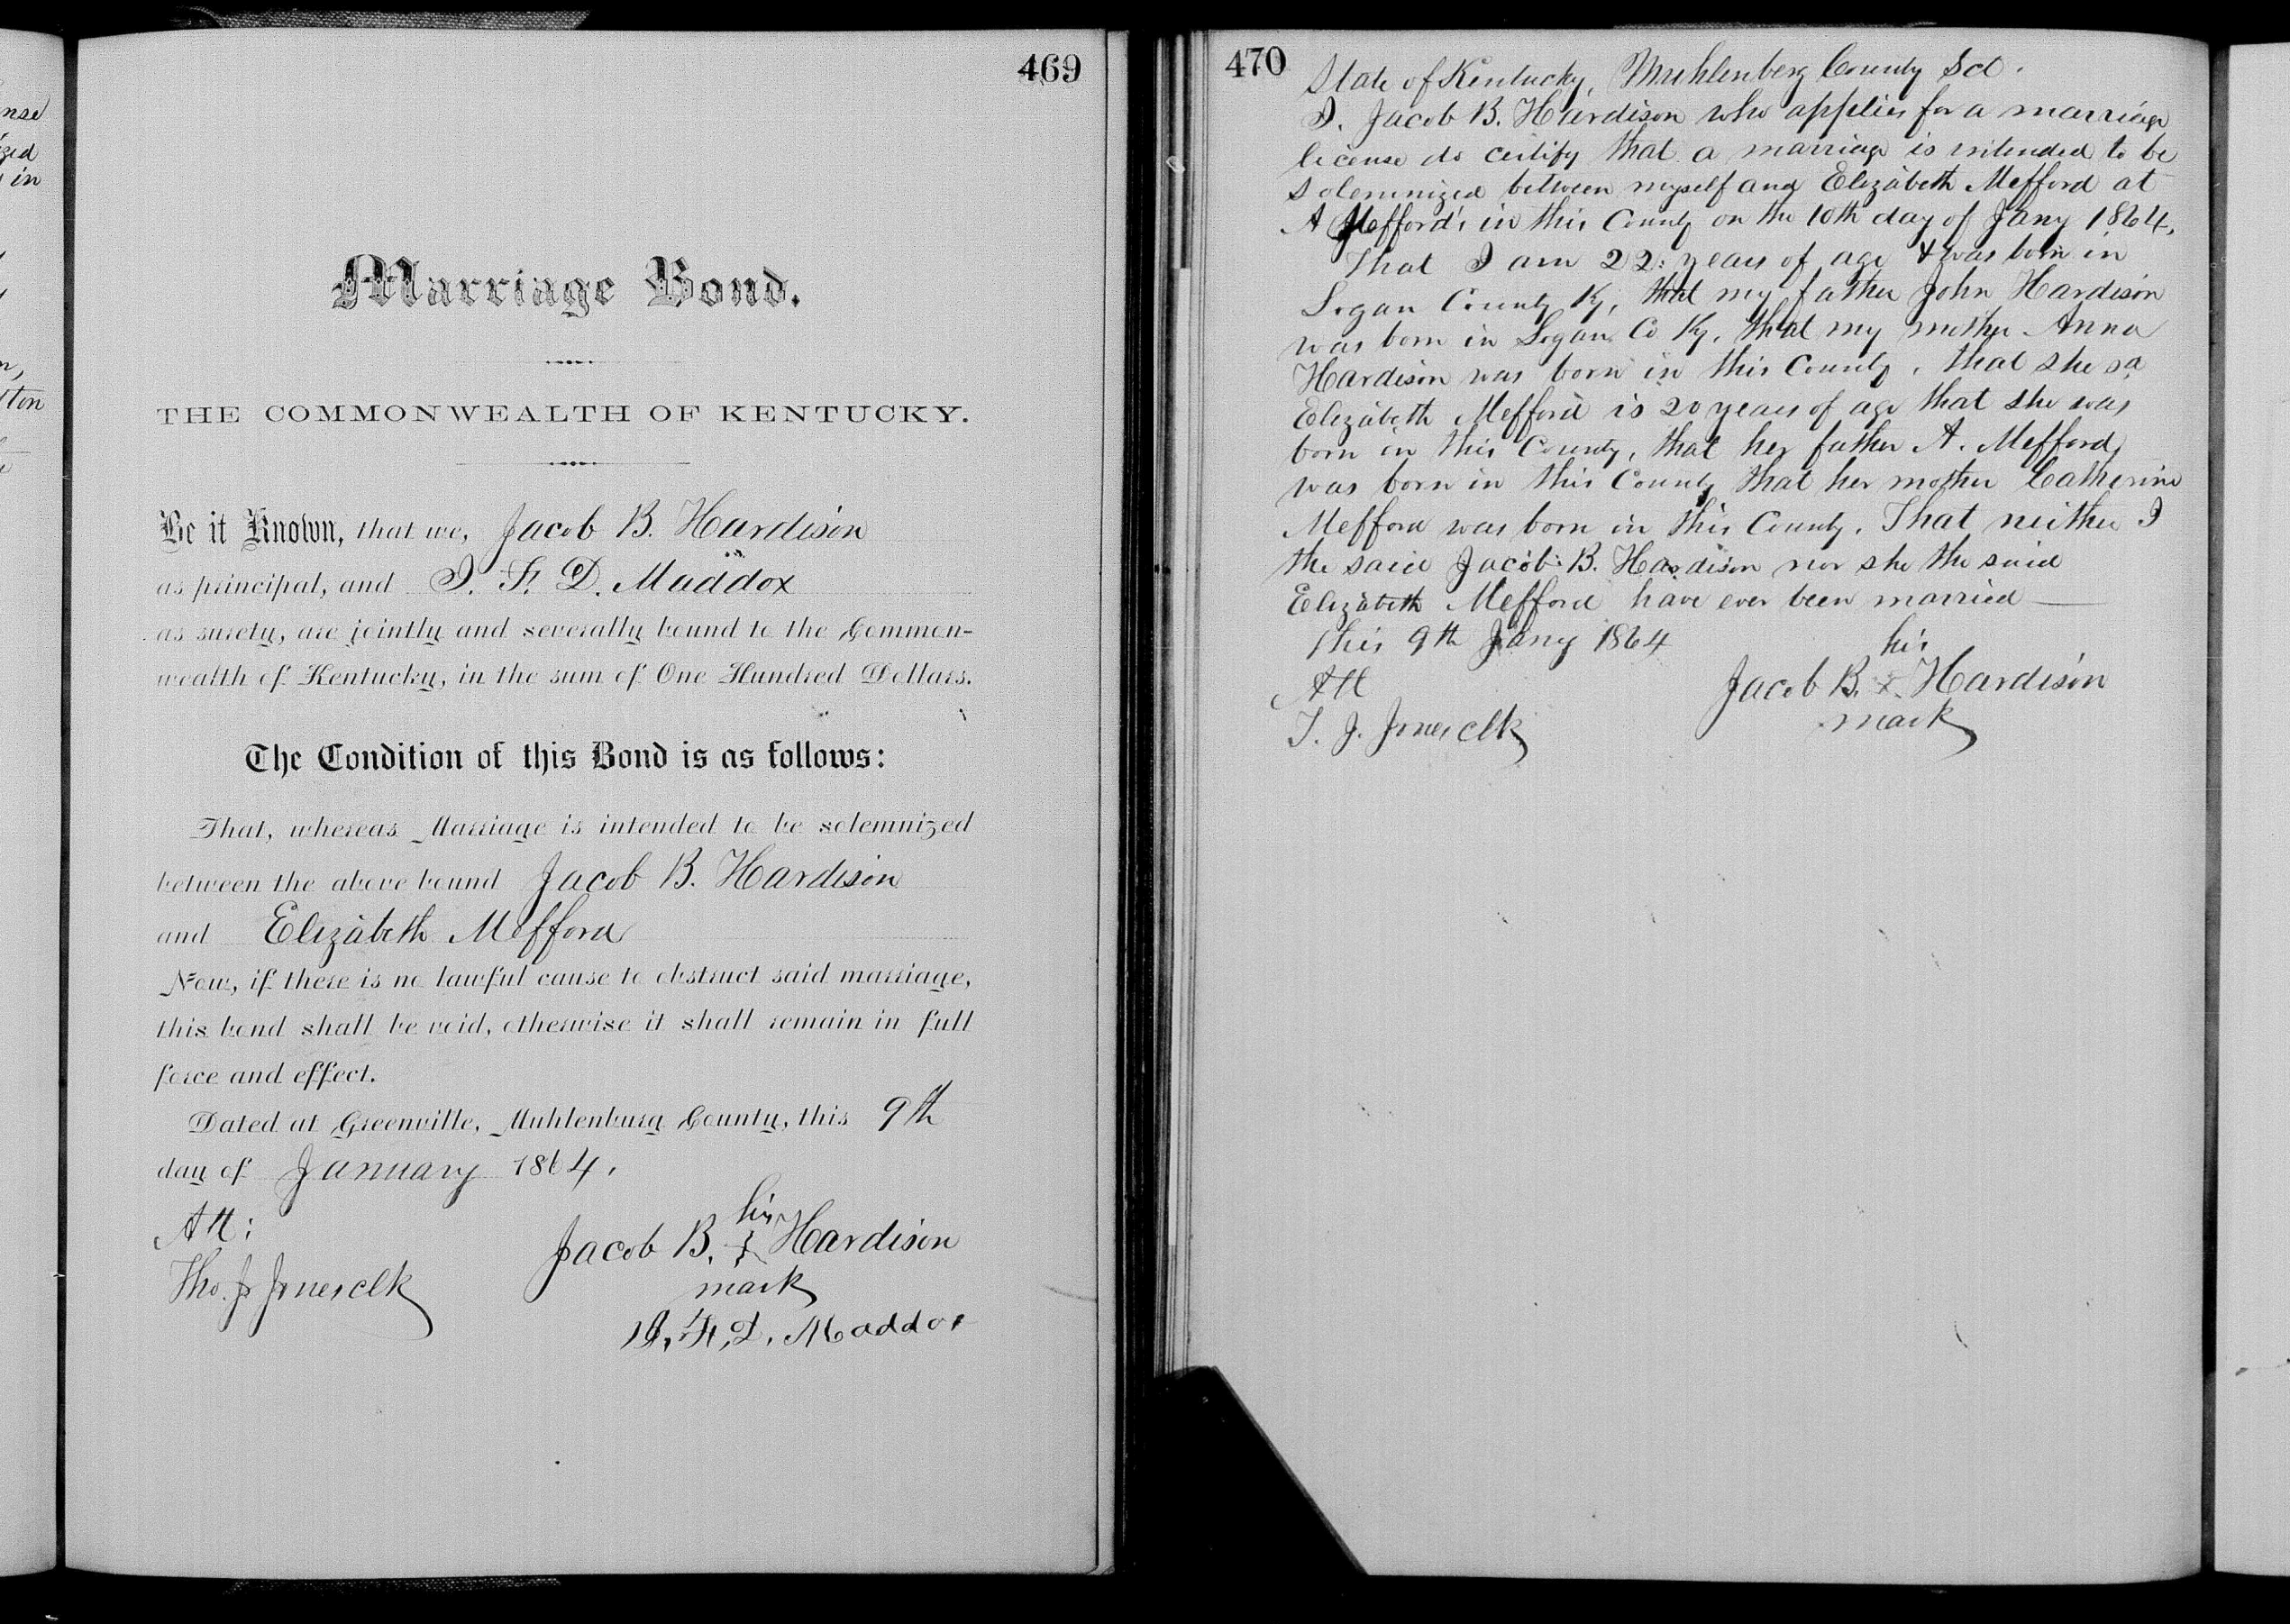 nse
ized
in
n,
tton
469
Marriage Bond.
THE COMMONWEALTH OF KENTUCKY.
Be it Known, that we, Jacob B. Hardison
as principal, and I. F. D. Maddox
as surety, are jointly and severally bound to the Common-
wealth of Kentucky, in the sum of One Hundred Dollars.
The Condition of this Bond is as follows:
That, whereas Marriage is intended to be solemnized
between the above bound Jacob B. Hardison
and Elizabeth Mefford
Now, if there is no lawful cause to obstruct said marriage,
this bond shall be void, otherwise it shall remain in full
force and effect.
Dated at Greenville, Muhlenburg County, this 9th
day of January 1864.
Att:
his
Jacob B. x Hardison
Tho. J. Jones clk
mark
F. D. Maddox
470
State of Kentucky, Muhlenberg County Sct.
I. Jacob B. Hardison who applies for a marriage
license do certify that a marriage is intended to be
solemnized between myself and Elizabeth Mefford at
A Mefford's in this County on the 10th day of Jany 1864,
That I am 22 years of age & was born in
Logan County Ky, that my father John Hardison
was born in Logan Co Ky. that my mother Anna
Hardison was born in this County, that she sd
Elizabeth Mefford is 20 years of age that she was
born in this County, that her father A. Mefford
was born in this County that her mother Catherine
Mefford was born in this County. That neither I
the said Jacob B. Hardison nor she the said
Elizabeth Mefford have ever been married —
This 9th Jany 1864
his
Att
Jacob B. x Hardison
T. J. Jones clk
mark